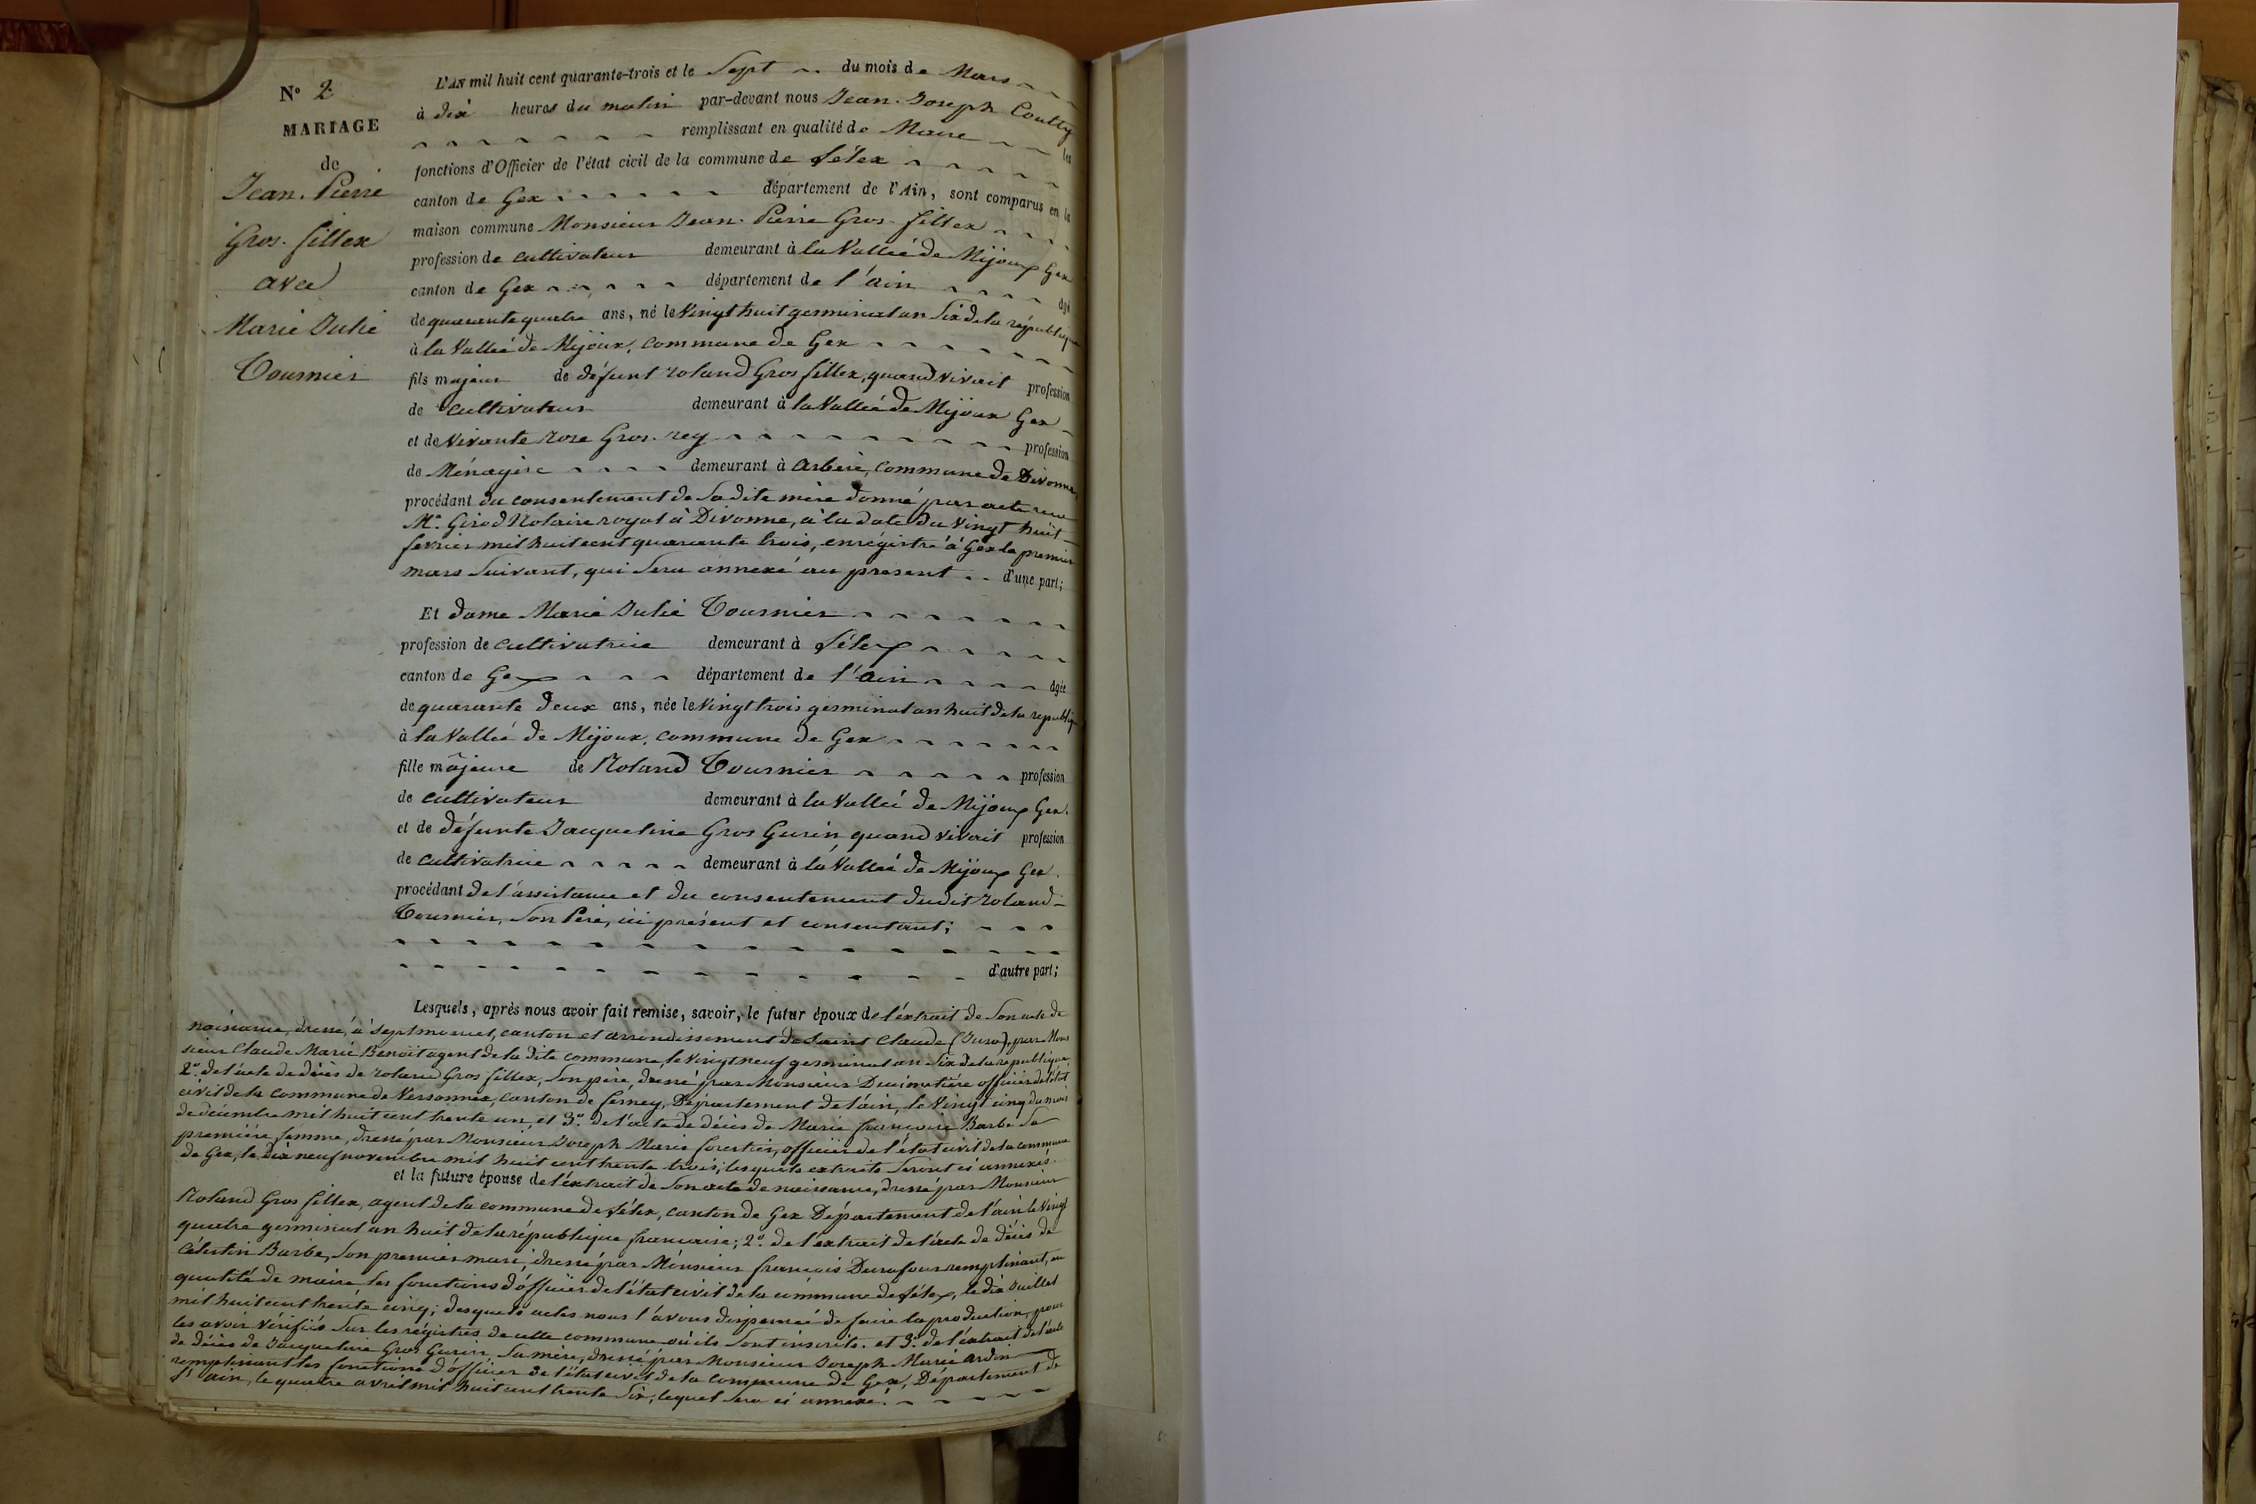 N° 2
MARIAGE
de
Jean. Pierre
Gros. fillex
avec
Marie Julie
Tournier
L'AN mil huit cent quarante-trois et le Sept du mois de Mars
à dix heures du matin par-devant nous Jean. Joseph
remplissant en qualité de Maire les
fonctions d'Officier de l'état civil de la commune de Lélex
canton de Gex département de l'Ain, sont comparus en la
maison commune Monsieur Jean. Pierre Gros. fillex
profession de cultivateur demeurant à la Vallée de Mijoux Gex
canton de Gex département de l'ain âgé
de quarante quatre ans, né le Vingt huit germinal an Six de la république
à la Vallée de Mijoux, commune de Gex
fils majeur de défunt roland Gros fillex, quand vivait profession
de cultivateur demeurant à la Vallée de Mijoux Gex
et de vivante rose Gros. rey profession
de Ménagère demeurant à arbere, commune de Divonne,
procédant du consentement de Sadite mère donné par acte reçu
Me. Girod Notaire royal à Divonne, à la date du Vingt huit
fevrier mil huit cent quarante trois, enrégistré à Gex le premier
mars Suivant, qui Sera annexé au present .. d'une part;
Et dame Marie Julie Tournier
profession de cultivatrice demeurant à Lélex
canton de Gex département de l'ain âgée
de quarante deux ans, née le Vingt trois germinal an huit de la republique
à la Vallée de Mijoux, commune de Gex
fille majeure de Roland Tournier profession
de cultivateur demeurant à la Vallée de Mijoux Gex.
et de défunte Jacqueline Gros Gurin quand vivait profession
de cultivatrice demeurant à la Vallée de Mijoux Gex.
procédant de l'assistance et du consentement dudit roland
Tournier, Son Père, ici présent et consentant;
d'autre part;
Lesquels, après nous avoir fait remise, savoir, le futur époux de l'éxtrait de Son acte de
naissance, dressé, à Septmoncel, canton et arrondissement de Saint Claude (Jura), par Mon
sieur Claude Marie Benoit agent de la dite commune, le Vingt neuf germinal an Six de la republique,
2.° de l'acte de décès de roland Gros fillex, Son père, dressé par Monsieur officier de l'état
civil de la commune de Versonnex, canton de ferney, Département de l'ain, le Vingt cinq du mois
de décembre mil huit cent trente un, et 3.° de l'acte de décès de Marie francoise Barbe Sa
première femme, dressé par Monsieur Joseph Marie forestier, officier de l'état civil de la commune
de Gex, le dix neuf novembre mil huit cent trente trois; lesquels extraits Seront ci annexés.
et la future épouse de l'éxtrait de Son acte de naissance, dressé par Monsieur
Roland Gros fillex, agent de la commune de Lélex, canton de Gex Département de l'ain le Vingt
quatre germinal an huit de la république francaise; 2.° de l'extrait de l'acte de décès de
Célestin Barbe, Son premier mari, dressé par Monsieur francois Durafour remplissant, en
qualité de maire les fonctions d'officier de l'état civil de la commune de Lélex, le dix Juillet
mil huit cent trente cinq; desquels actes nous l'avons dispensée de faire la production, pour
les avoir vérifiés Sur les régistres de cette commune où ils Sont inscrits. et 3.° de l'extrait de l'acte
de décès de Jacqueline Gros Gurin, Sa mère, dressé par Monsieur Joseph Marie
remplissant les fonctions d'officier de l'état civil de la commune de Gex, Département de
l'ain, le quatre avril mil huit cent trente Six, lequel Sera ci annexé.